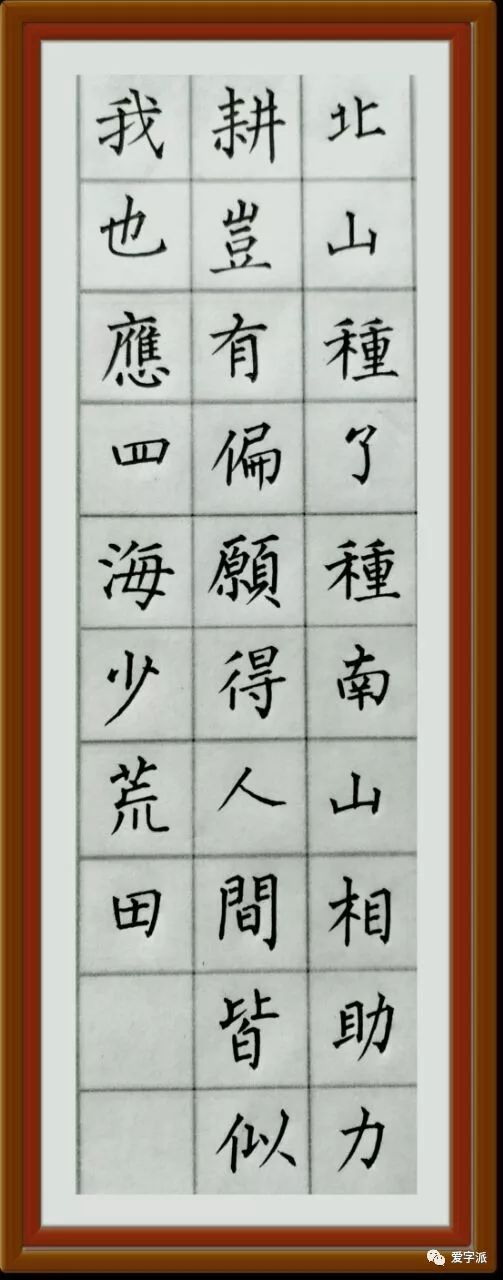 北山種了種南山相助力
耕豈有偏願得人間皆似
我也應四海少荒田
爱字派